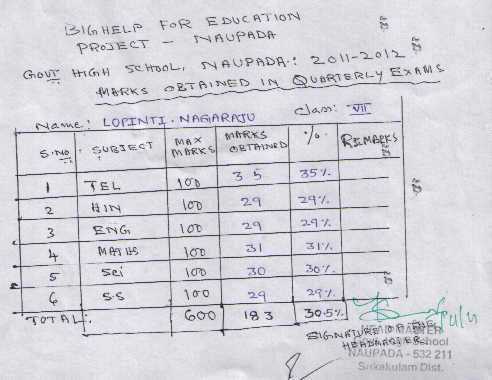 BIGHELP FOR EDUCATION
PROJECT - NAUPADA
GOVT HIGH SCHOOL, NAUPADA.: 2011-2012
MARKS OBTAINED IN QUARTERLY EXAMS
Name: LOPINTI. NAGARAJU Class: VII
S.No: SUBJECT MAX MARKS MARKS OBTAINED %. REMARKS
1 TEL 100 35 35%
2 HIN 100 29 29%
3 ENG 100 29 29%
4 MATHS 100 31 31%
5 Sci 100 30 30%
6 S.S 100 29 29%
TOTAL: 600 183 30.5%
SIGNATURE OF THE
HEADMASTER
School
NAUPADA - 532 211
Srikakulam Dist.